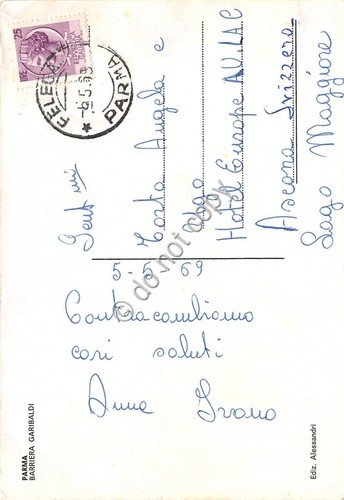 25
FELEGARA
-6.5.69
PARMA
Gent mi
Costa Angela e
Ugo
Hotel Europe au LAC
Ascona Svizzera
Lago Maggiore
5-5 69
Contracambiamo
cari saluti
Anna Ivano
PARMA
BARRIERA GARIBALDI
Ediz. Alessandri
© do not copy